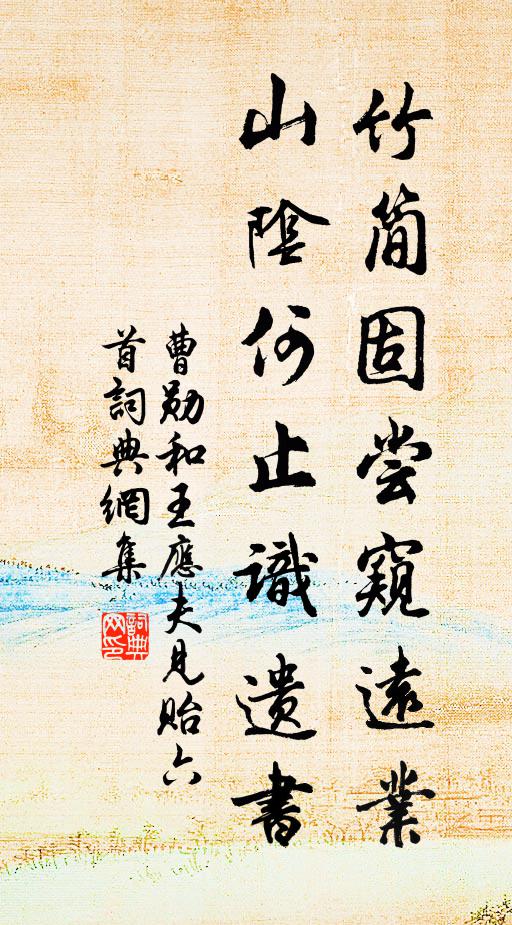 竹简固尝窥遠業
山陰何止識遺書
曹勛和王應夫見貽六
首詞典網集
詞典
网印